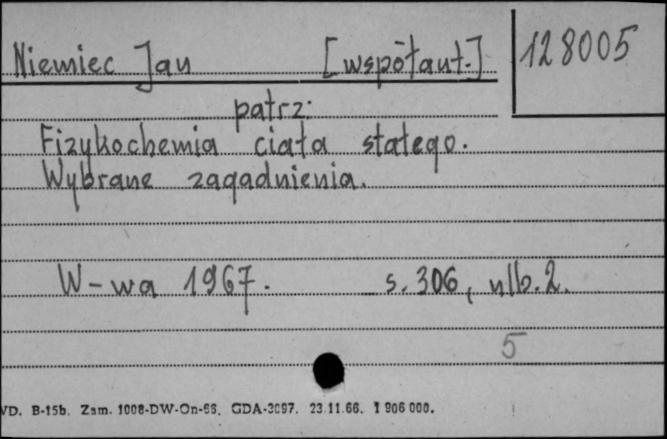 Niemiec Jan [współaut.] 128005
patrz:
Fizykochemia ciała stałego.
Wybrane zagadnienia.
W-wa 1967. s. 306, nlb. 2.
5
VD. B-15b. Zam. 1008-DW-On-66. GDA-3097. 23.11.66. 1 906 000.